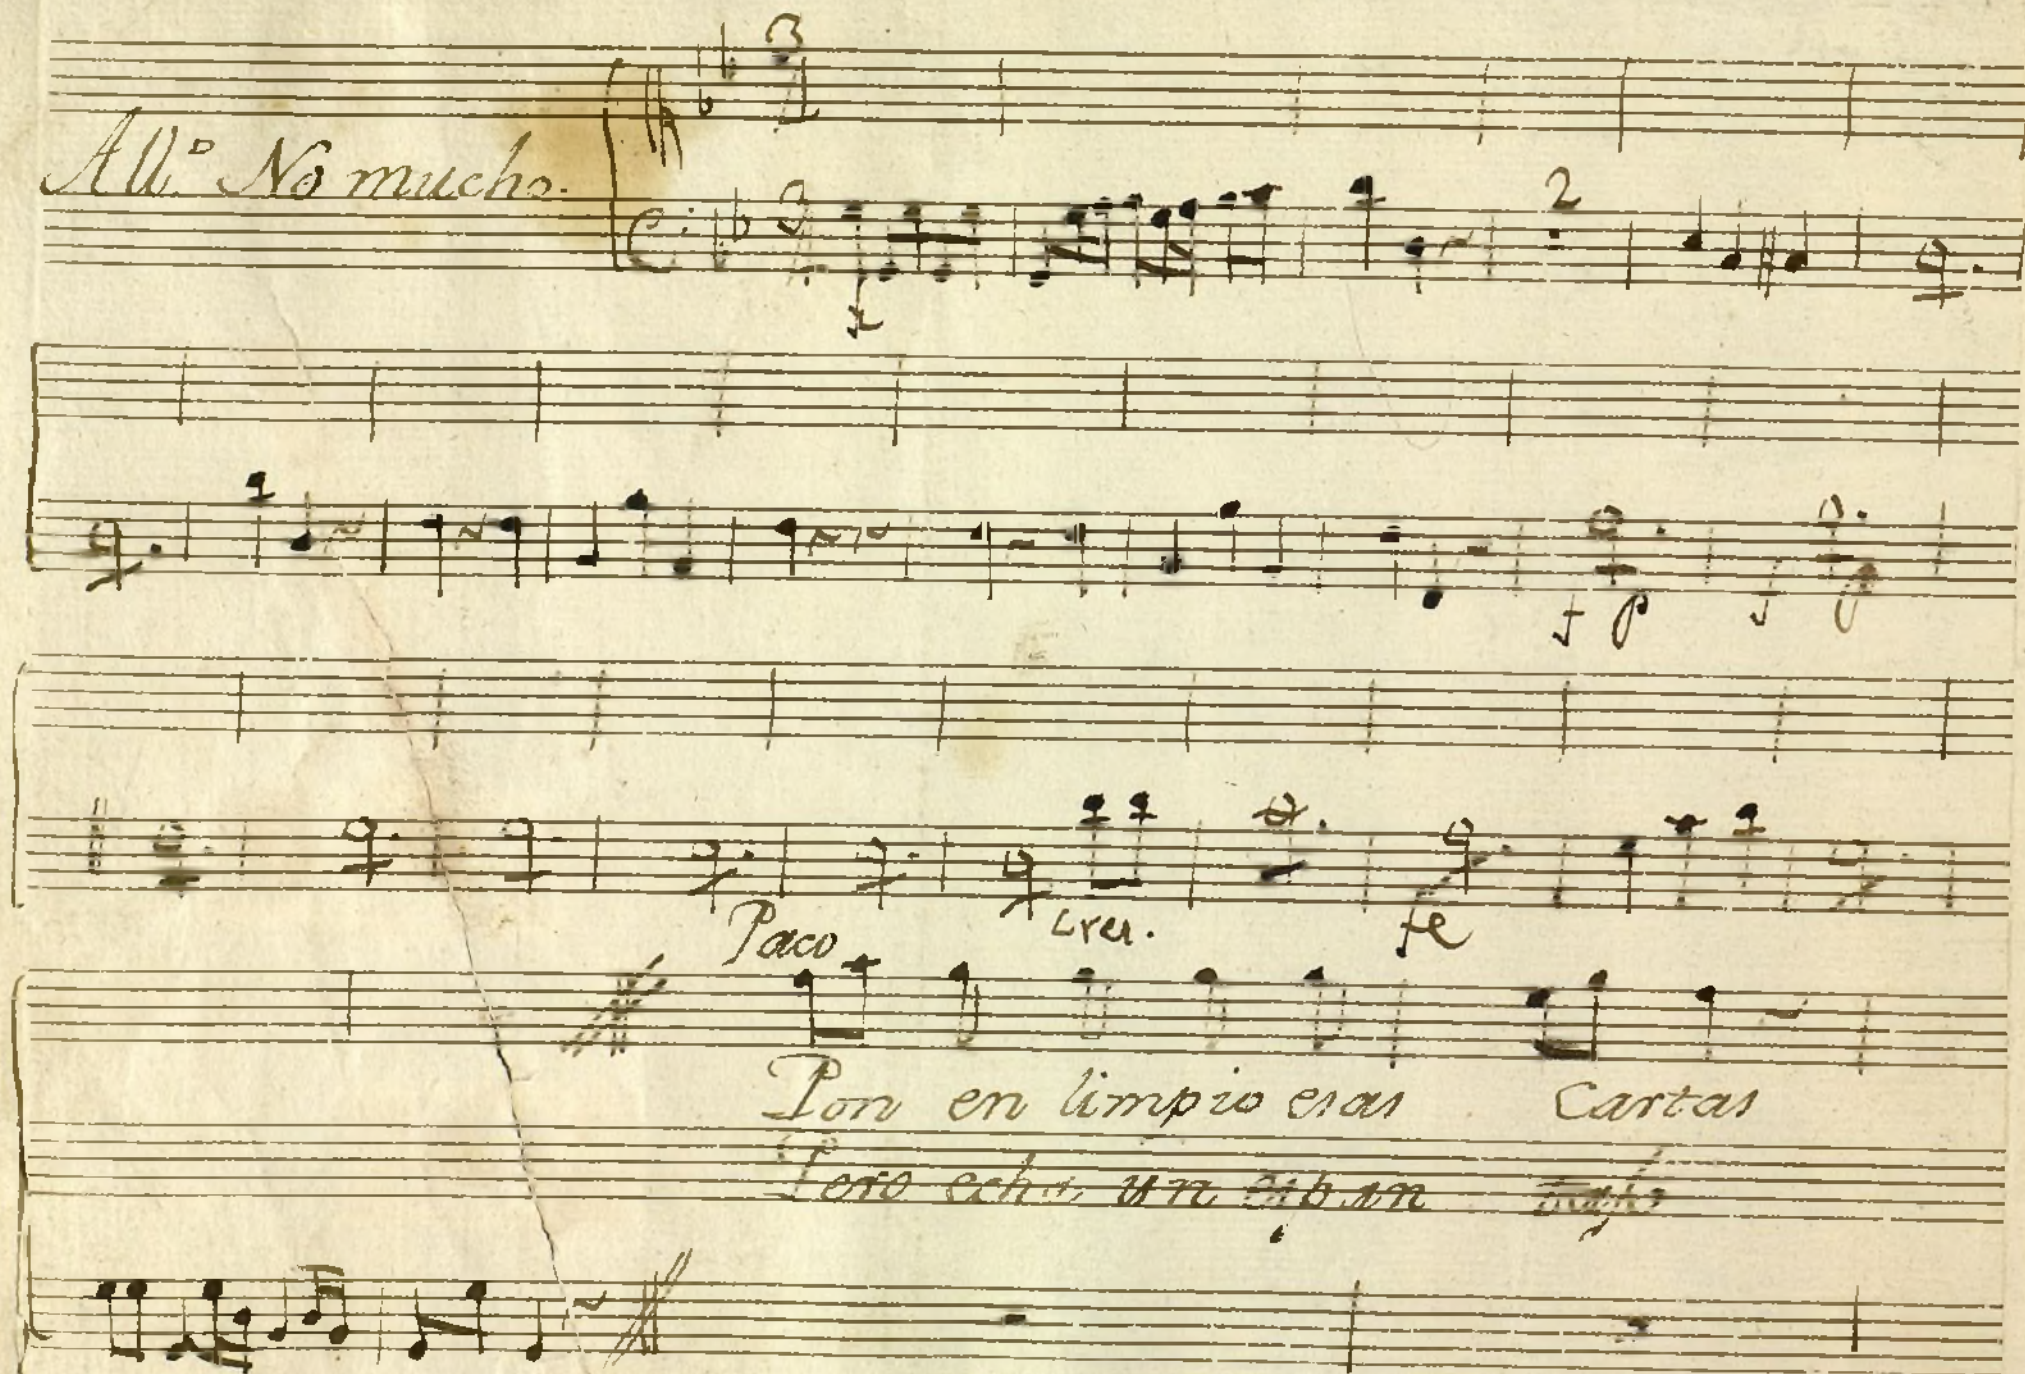 3
All.º No mucho.
3
2
f
f p f p
Paco
cres.
fe
Pon en limpio esas Cartas
Pero echa un